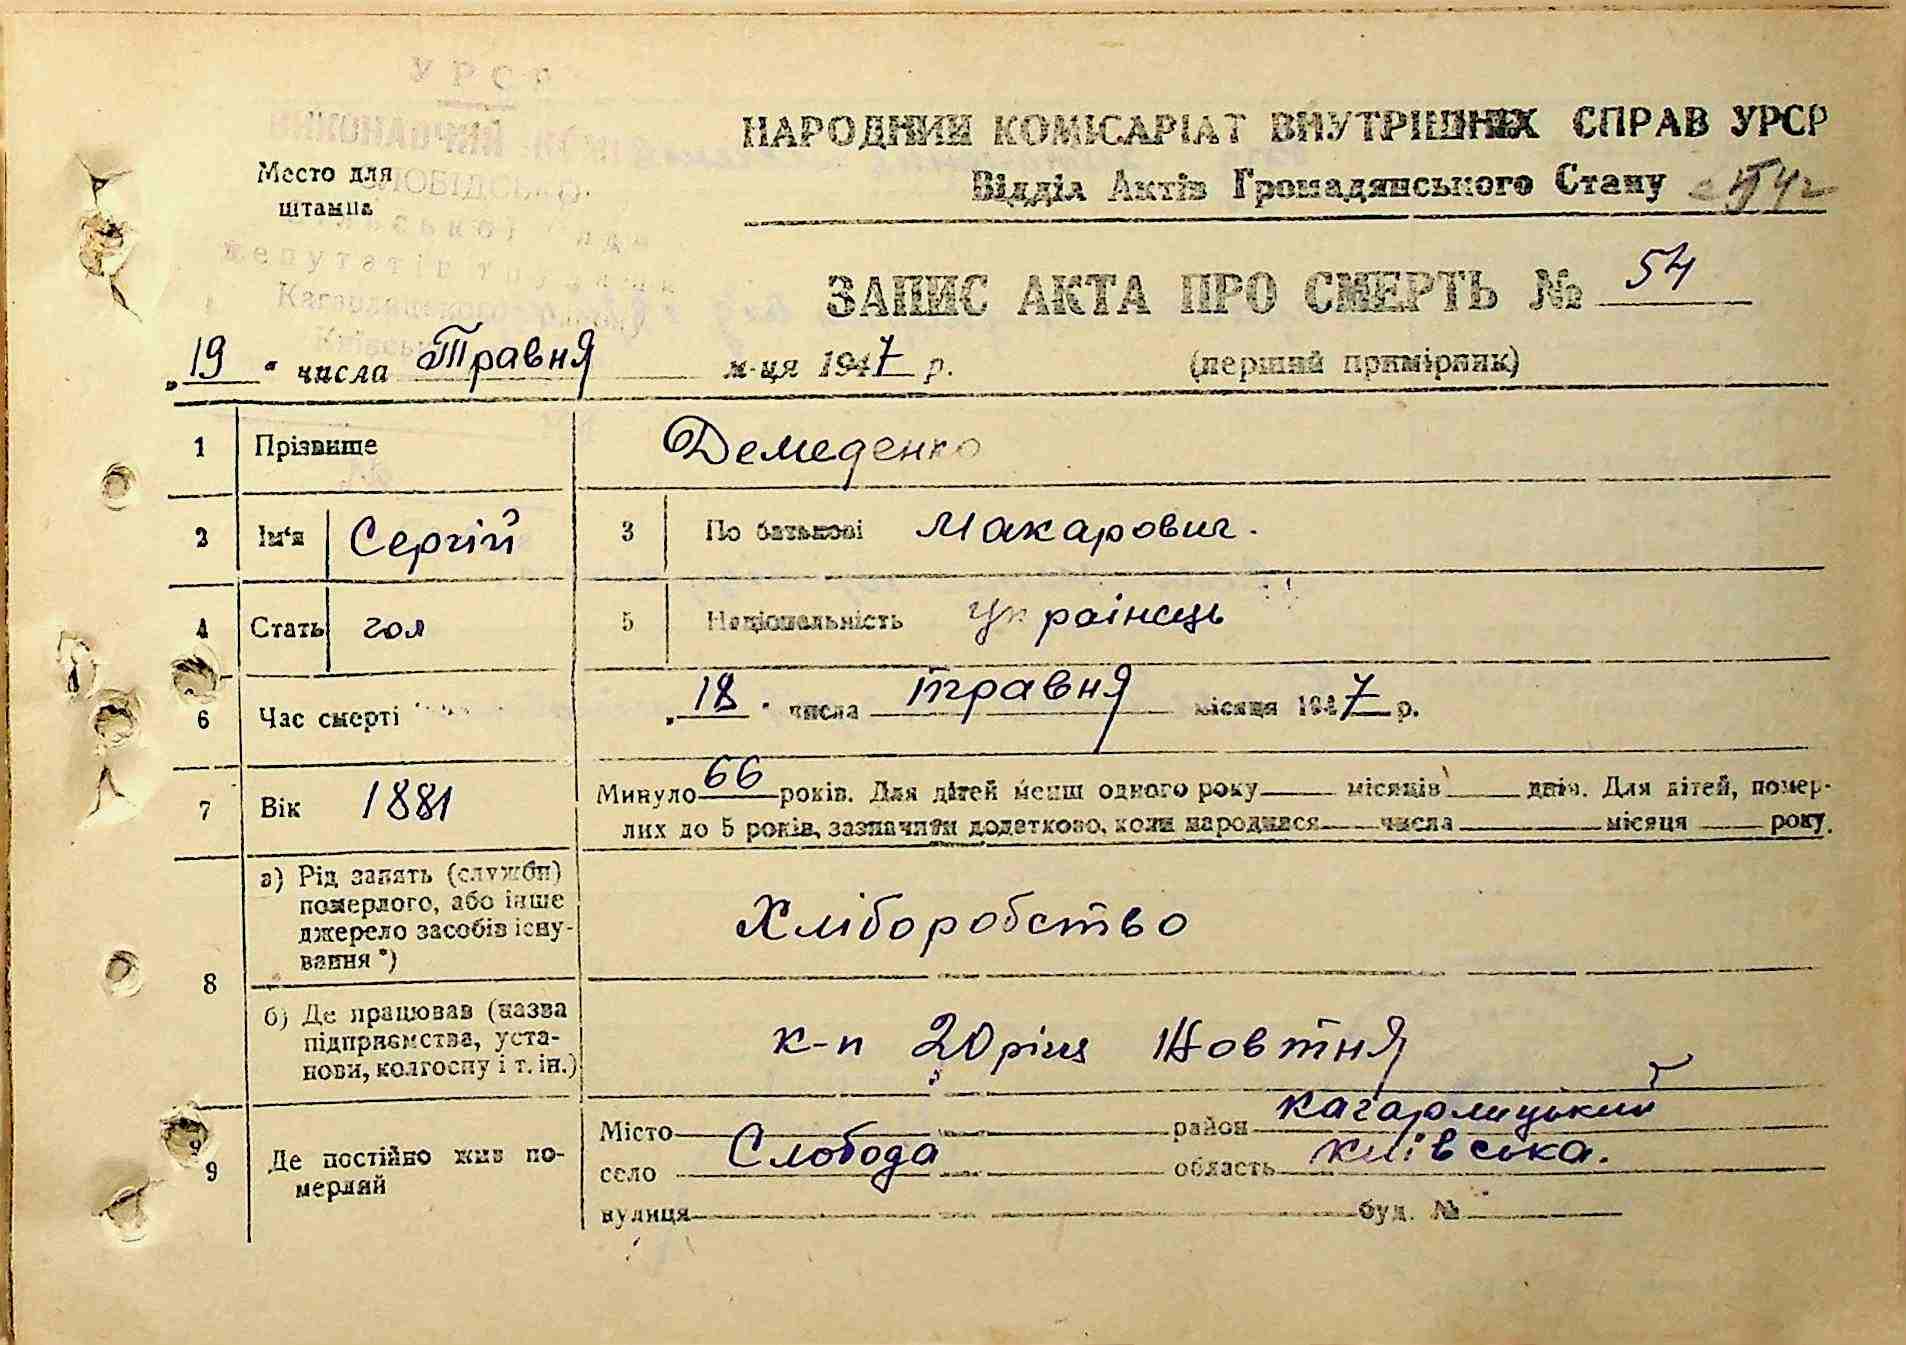 УРСР
ВИКОНАВЧИЙ
СЛОБІДСЬКО
депутатів
Кагарлицького
НАРОДНИЙ КОМІСАРІАТ ВНУТРІШНІХ СПРАВ УРСР
Место для
штампа
Відділ Актів Громадянського Стану
ЗАПИС АКТА ПРО СМЕРТЬ № 54
„19“ числа Травня м-ця 1947 р. (перший примірник)
1 Прізвище Демеденко
2 Ім'я Сергій 3 По батькові Макарович.
4 Стать чол 5 Національність Українець
6 Час смерті „18“ числа травня місяця 1947 р.
7 Вік 1881 Минуло 66 років. Для дітей менш одного року місяців днів. Для дітей, помер-
лих до 5 років, зазначити додатково, коли народився числа місяця року.
8 а) Рід занять (служби)
померлого, або інше
джерело засобів існу-
вання*)
Хліборобство
б) Де працював (назва
підприємства, уста-
нови, колгоспу і т. ін.)
к-п 20 річ Жовтня
9 Де постійно жив по-
мерлий
Місто район Кагарлицький
село Слобода область київська.
вулиця буд. №